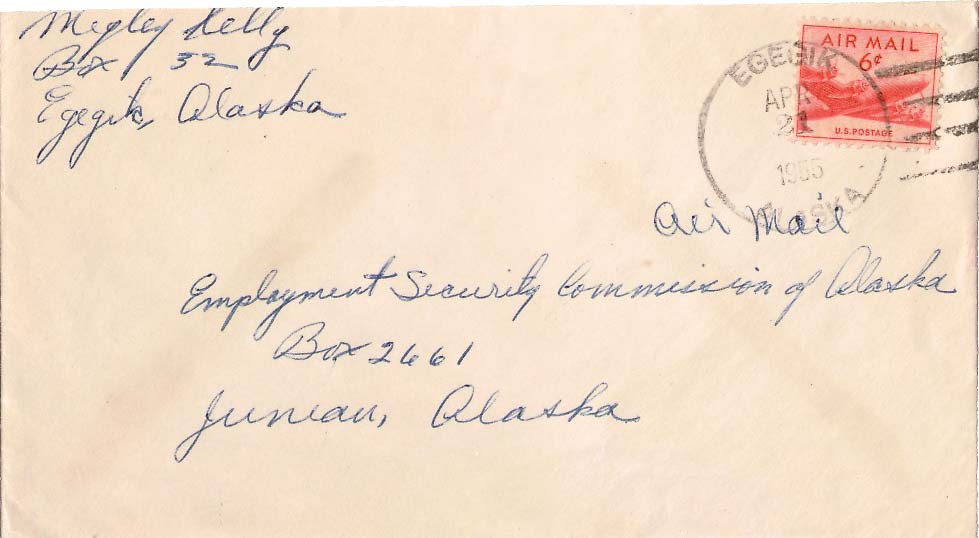 Megley Kelly
Box 32
Egegik, Alaska
AIR MAIL
6¢
U.S. POSTAGE
EGEGIK
APR
21
1955
ALASKA
Air Mail
Employment Security Commission of Alaska
Box 2661
Juneau, Alaska